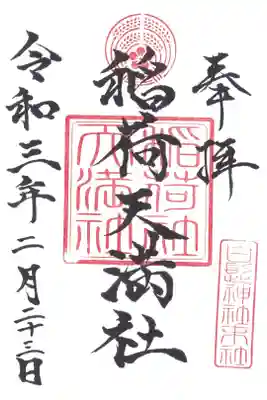 奉拝
稲荷天満社
稲荷社
天満社
令和三年二月二十三日